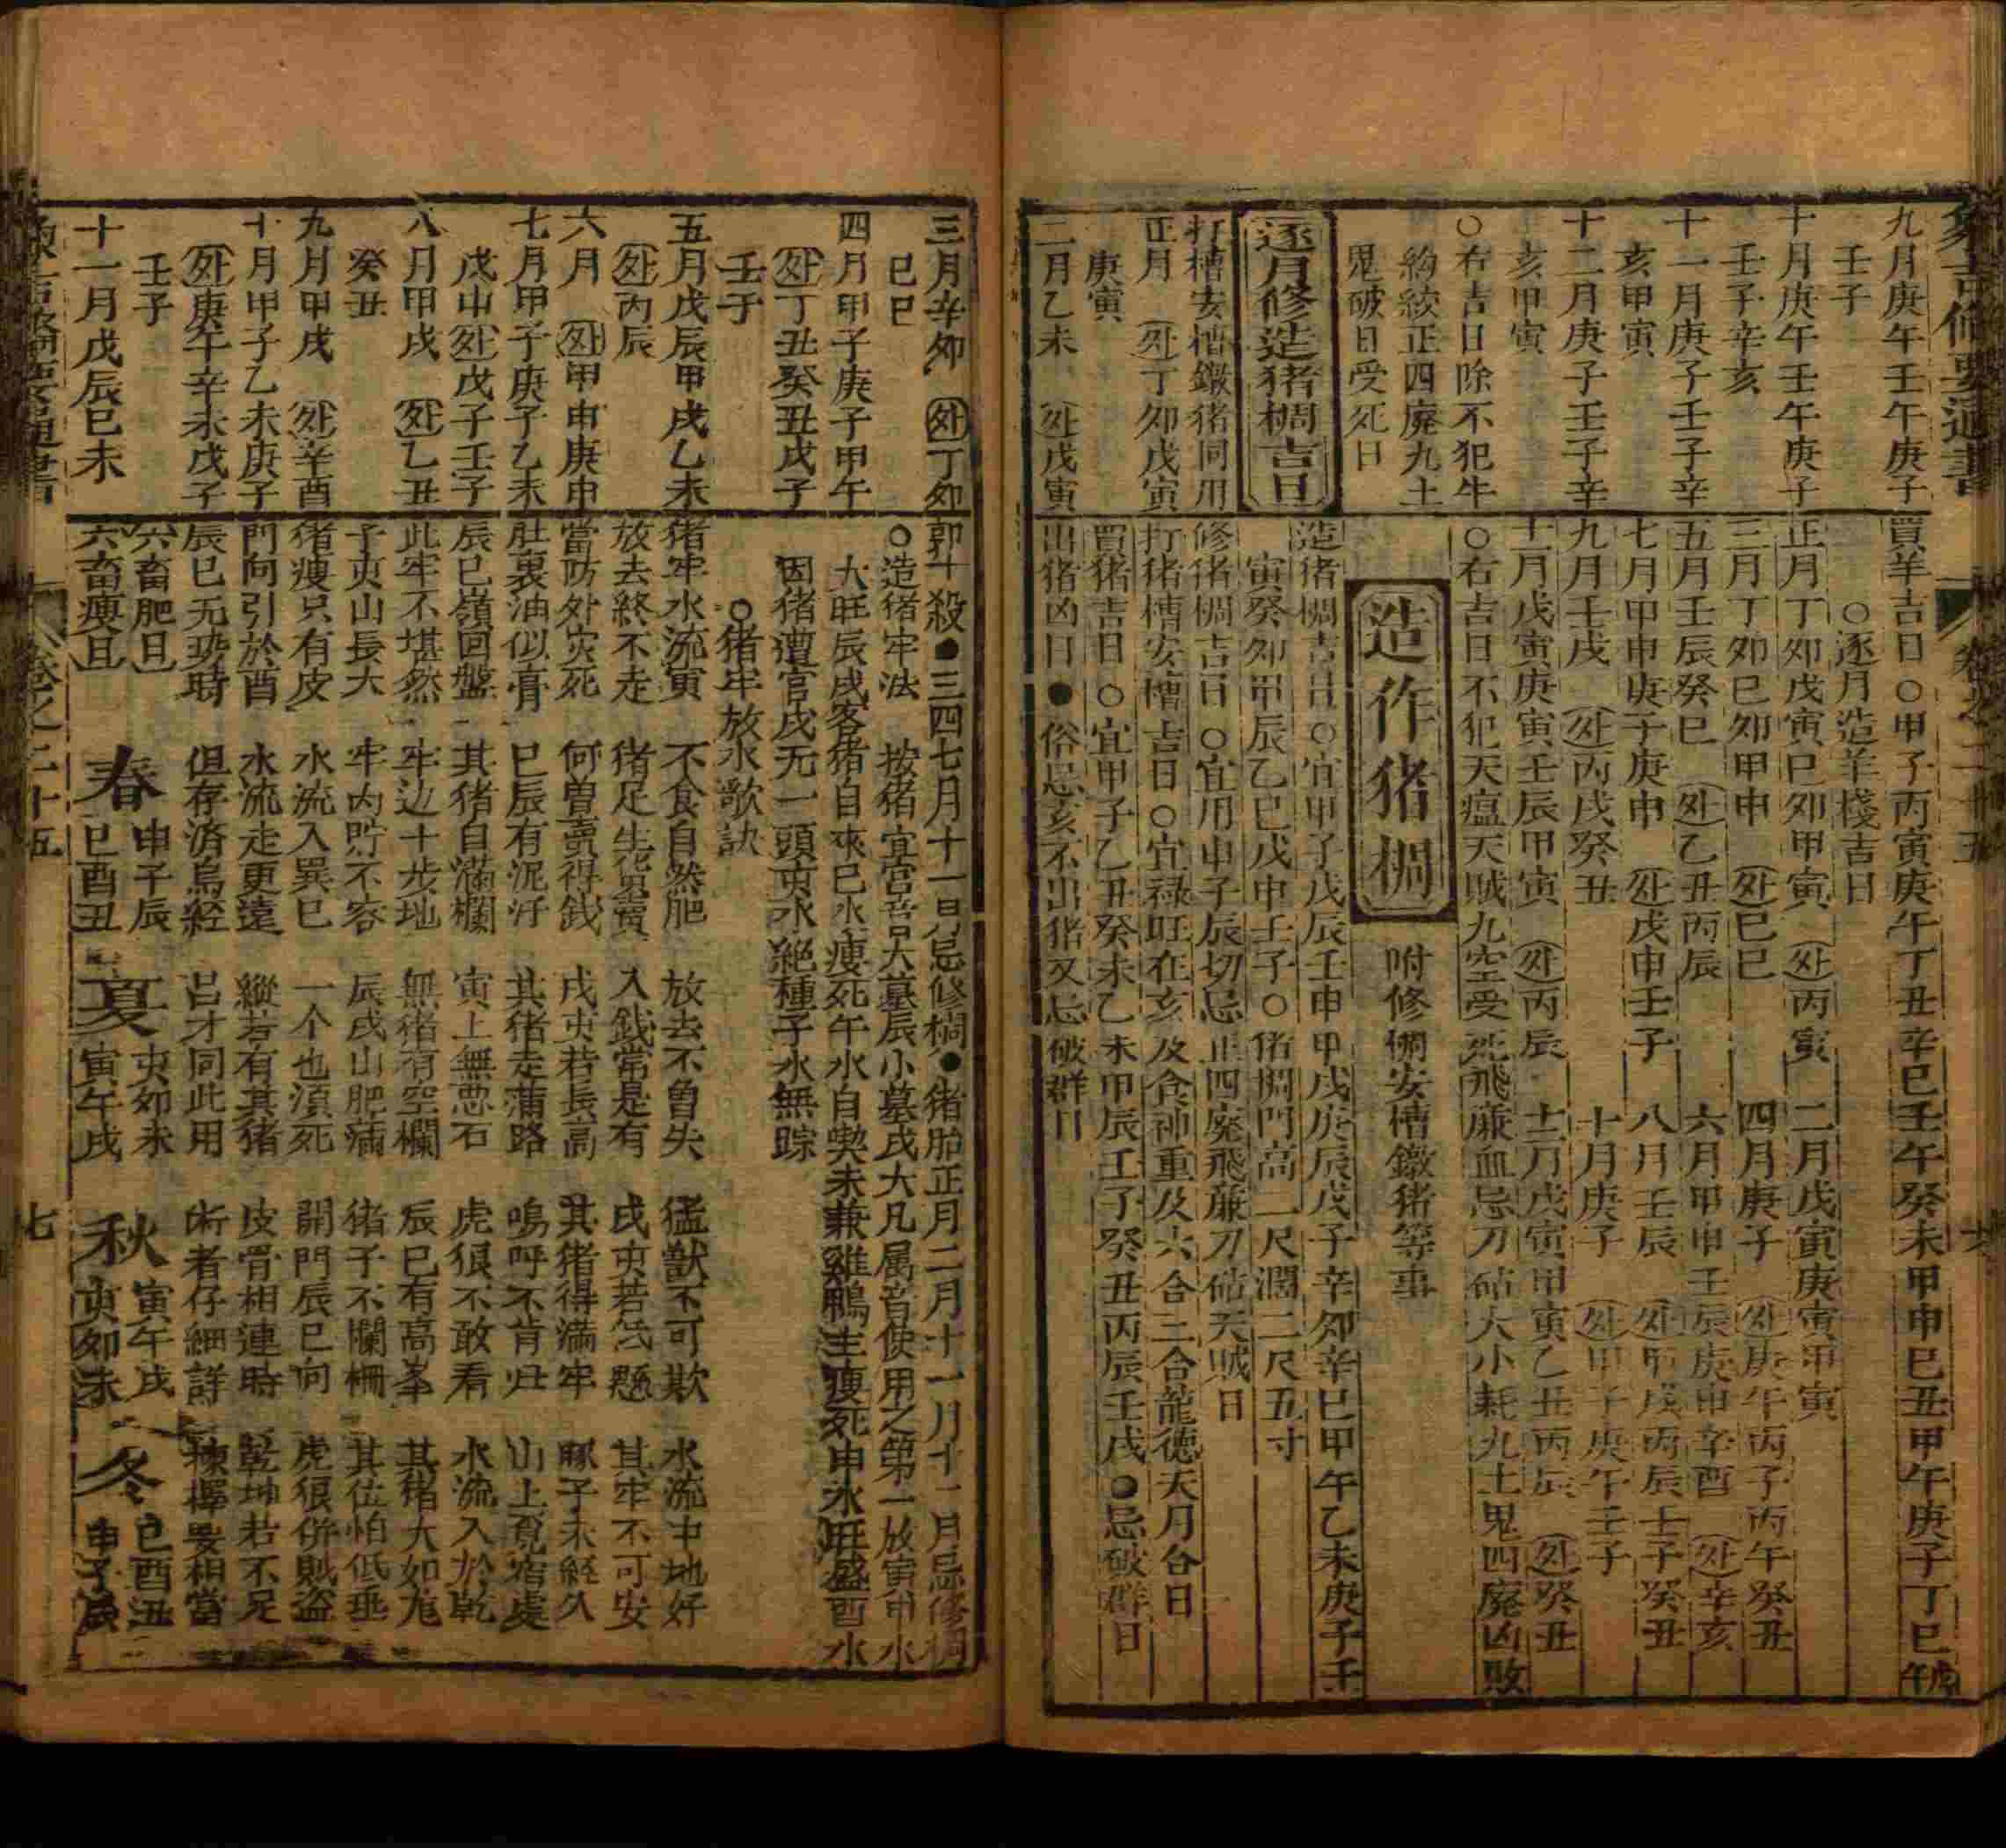 九月庚午壬午庚子
壬子
十月庚午壬午庚子
壬子辛亥
十一月庚子壬子辛
亥甲寅
十二月庚子壬子辛
亥甲寅
○右吉日除不犯牛
絇絞正四廢九土
鬼破日受死日
逐月修造猪椆吉日
打槽安槽鐓猪同用
正月 外丁卯戊寅
庚寅
二月乙未 外戊寅
買羊吉日○甲子丙寅庚午丁丑辛巳壬午癸未甲申巳丑甲午庚子丁巳
○逐月造羊棧吉日
正月丁卯戊寅巳卯甲寅 外丙寅 二月戊寅庚寅甲寅
三月丁卯巳卯甲申 外巳巳 四月庚子 外庚午丙子丙午癸丑
五月壬辰癸巳 外乙丑丙辰 六月甲申壬辰庚申辛酉 外辛亥
七月甲申庚子庚申 外戊申壬子 八月壬辰 外甲戌丙辰壬子癸丑
九月壬戌 外丙戌癸丑 十月庚子 外甲子庚午壬子
十一月戊寅庚寅壬辰甲寅 外丙辰 十二月戊寅甲寅乙丑丙辰 外癸丑
○右吉日不犯天瘟天賊九空受死飛廉血忌刀砧大小耗九土鬼四廢凶敗
造作猪椆 附修椆安槽鐓猪等事
造猪椆吉日○宜甲子戊辰壬申甲戌庚辰戊子辛卯辛巳甲午乙未庚子壬
寅癸卯甲辰乙巳戊申壬子○猪椆門高二尺濶二尺五寸
修猪椆吉日○宜用申子辰切忌正四廢飛廉刀砧天賊日
打猪槽安槽吉日○宜祿旺在亥及食神重及六合三合龍德天月合日
買猪吉日○宜甲子乙丑癸未乙未甲辰壬子癸丑丙辰壬戌●忌破群日
出猪凶日●俗忌亥不出猪又忌破群日
三月辛卯 外丁卯
巳巳
四月甲子庚子甲午
外丁丑癸丑戊子
壬子
五月戊辰甲戌乙未
外丙辰
六月 外甲申庚申
七月甲子庚子乙未
戊申外戊子壬子
八月甲戌 外乙丑
癸丑
九月甲戌 外辛酉
十月甲子乙未庚子
外庚午辛未戊子
壬子
十一月戊辰巳未
殺●三四七月十一月忌修椆●猪胎正月二月十一月十二月忌修椆
○造猪牢法 按猪宜宮音大墓辰小墓戌大凡属音使用之第一放寅甲水
大旺辰戌客猪自來巳水瘦死午水自喫未兼雞鵬生瘦死申水旺盛酉水
因猪遭官戌无一頭亥水絶種子水無踪
○猪牢放水歌訣
猪牢水流寅 不食自然肥 放去不曾失 猛獣不可欺 水流中地好
放去終不走 猪足生 入錢常是有 戌亥若 其牢不可安
當防外灾死 何曽賣得錢 戌亥若長高 其猪得滿牢 豚子未經久
肚裏油似膏 巳辰有泥汙 其猪走蒲路 鳴呼不肯归 山上覓宿處
辰巳嶺回盤 其猪自滿欄 寅上無悪石 虎狠不敢看 水流入於乾
此牢不堪然 牢边十步地 無猪有空欄 辰巳有高峯 其猪大如
子亥山長大 牢内貯不容 辰戌山肥滿 猪子不攔柵 其位怕低垂
猪瘦只有皮 水流入巽巳 一个也須死 開門辰巳向 虎狠併賊盗
門向引於酉 水流走更遠 縱若有其猪 皮骨相連時 乾坤若不足
辰巳无 時 但存済烏經 呂才同此用 術者仔細詳 揀擇要相當
六畜肥日 春 申子辰 夏 亥卯未 秋 寅午戌 冬 巳酉丑
六畜瘦日 巳酉丑 寅午戌 亥卯未 申子辰
卷之二十五 七